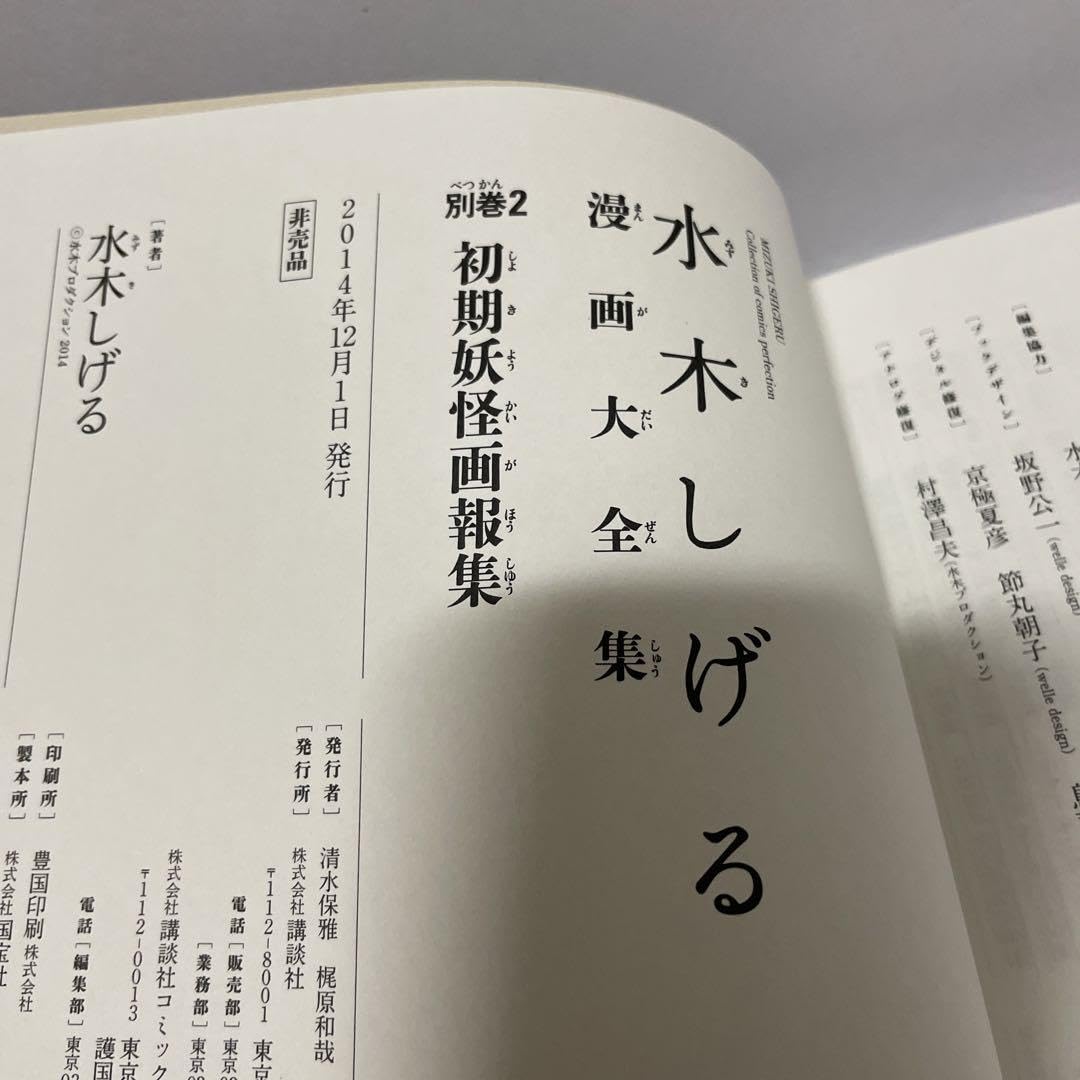 [編集協力]
[ブックデザイン] 坂野公一 (welle design) 節丸朝子 (welle design)
[デジタル修復] 京極夏彦
[アナログ修復] 村澤昌夫 (水木プロダクション)
MIZUKI SHIGERU
Collection of comics perfection
水木しげる
みずき
漫画大全集
まんがだいぜんしゅう
別巻2
べつかん
初期妖怪画報集
しょきようかいがほうしゅう
2014年12月1日 発行
非売品
[著者]
水木しげる
みずき
©水木プロダクション 2014
[発行者] 清水保雅 梶原和哉
[発行所] 株式会社 講談社
〒112-8001 東京
電話 [販売部] 東京03
[業務部] 東京03
株式会社 講談社コミック
〒112-0013 東京
護国
電話 [編集部] 東京03
[印刷所] 豊国印刷 株式会社
[製本所] 株式会社 国宝社